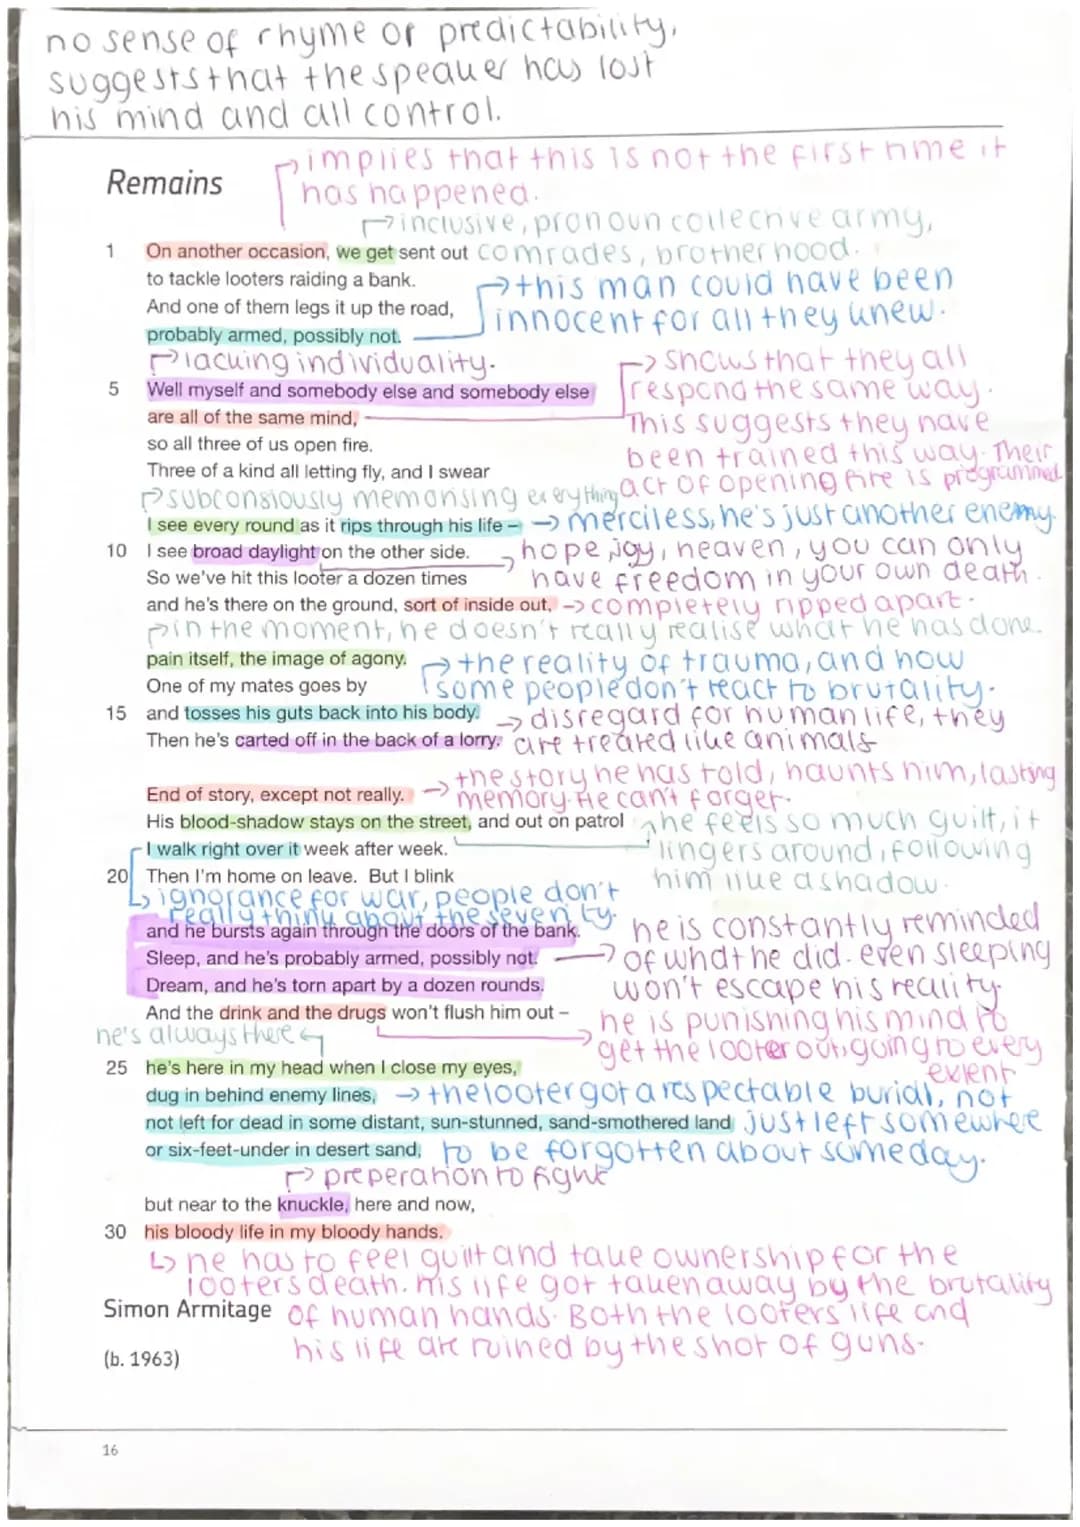 no sense of rhyme or predictability,
suggests that the speaker has lost
his mind and all control.
implies that this is not the first time it
Remains
has happened.
inclusive, pronoun collective army,
1 On another occasion, we get sent out comrades, brotherhood.
to tackle looters raiding a bank.
this man could have been
And one of them legs it up the road,
innocent for all they knew.
probably armed, possibly not.
lacking individuality.
shows that they all
5 Well myself and somebody else and somebody else
respond the same way.
are all of the same mind,
This suggests they have
so all three of us open fire.
been trained this way. Their
Three of a kind all letting fly, and I swear
act of opening fire is programmed
subconsiously memorising everything
I see every round as it rips through his life – merciless, he's just another enemy.
10 I see broad daylight on the other side.
hope, joy, heaven, you can only
So we've hit this looter a dozen times
have freedom in your own death.
and he's there on the ground, sort of inside out, completely ripped apart.
in the moment, he doesn't really realise what he has done.
pain itself, the image of agony.
the reality of trauma, and how
One of my mates goes by
some people don't react to brutality.
15 and tosses his guts back into his body.
disregard for human life, they
Then he's carted off in the back of a lorry. are treated like animals
the story he has told, haunts him, lasting
End of story, except not really.
memory. He can't forget.
His blood-shadow stays on the street, and out on patrol he feels so much guilt, it
I walk right over it week after week.
lingers around, following
20 Then I'm home on leave. But I blink
him like a shadow.
ignorance for war, people don't
really think about the severity.
and he bursts again through the doors of the bank.
he is constantly reminded
Sleep, and he's probably armed, possibly not.
of what he did. even sleeping
Dream, and he's torn apart by a dozen rounds.
won't escape his reality.
And the drink and the drugs won't flush him out –
he is punishing his mind to
he's always there
get the looter out, going to every
extent
25 he's here in my head when I close my eyes,
dug in behind enemy lines, the looter got a respectable burial, not
not left for dead in some distant, sun-stunned, sand-smothered land just left somewhere
or six-feet-under in desert sand, to be forgotten about someday.
preperation to fight
but near to the knuckle, here and now,
30 his bloody life in my bloody hands.
he has to feel guilt and take ownership for the
looters death. his life got taken away by the brutality
Simon Armitage of human hands. Both the looters' life and
his life are ruined by the shot of guns.
(b. 1963)
16